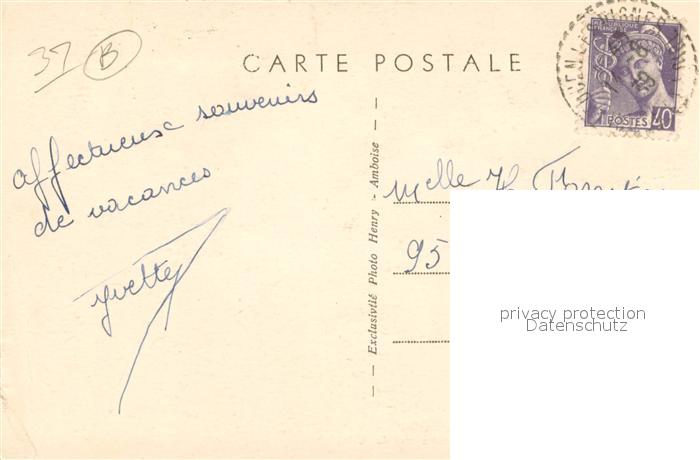 37 B
CARTE POSTALE
RÉPUBLIQUE FRANÇAISE
POSTES 40
affectueux souvenirs
de vacances
Yvette
Exclusivité Photo Henry - Amboise
Melle
95
privacy protection
Datenschutz